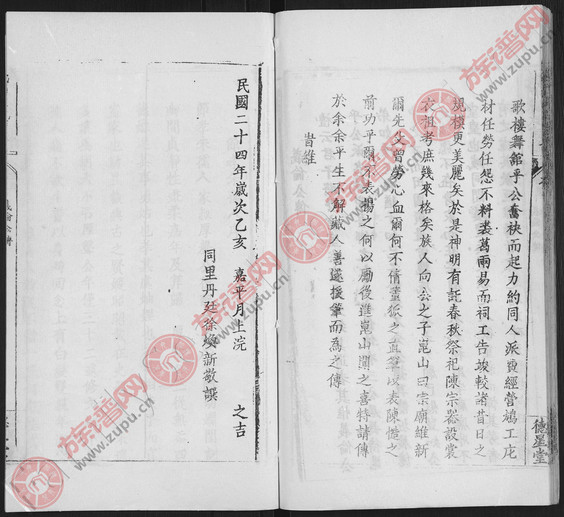 歌樓舞館乎公奮袂而起力約同人派費經營鳩工庀
材任勞任怨不料裘葛兩易而祠工告竣較諸昔日之
規模更美麗矣於是神明有託春秋祭祀陳宗器設裳
衣祖考庶幾來格矣族人向公之子崑山曰宗廟維新
爾先父曾勞心血爾何不倩董狐之直筆以表陳惜之
前功乎爾不表揚之何以勵後進崑山聞之喜特請傳
於余余平生不解緘人善遂援筆而為之傳
旹維
民國二十四年歲次乙亥 嘉平月上浣 之吉
同里丹廷徐煥新敬譔
德星堂
族谱网
www.zupu.cn
族谱网
www.zupu.cn
族谱网
www.zupu.cn
族谱网
www.zupu.cn